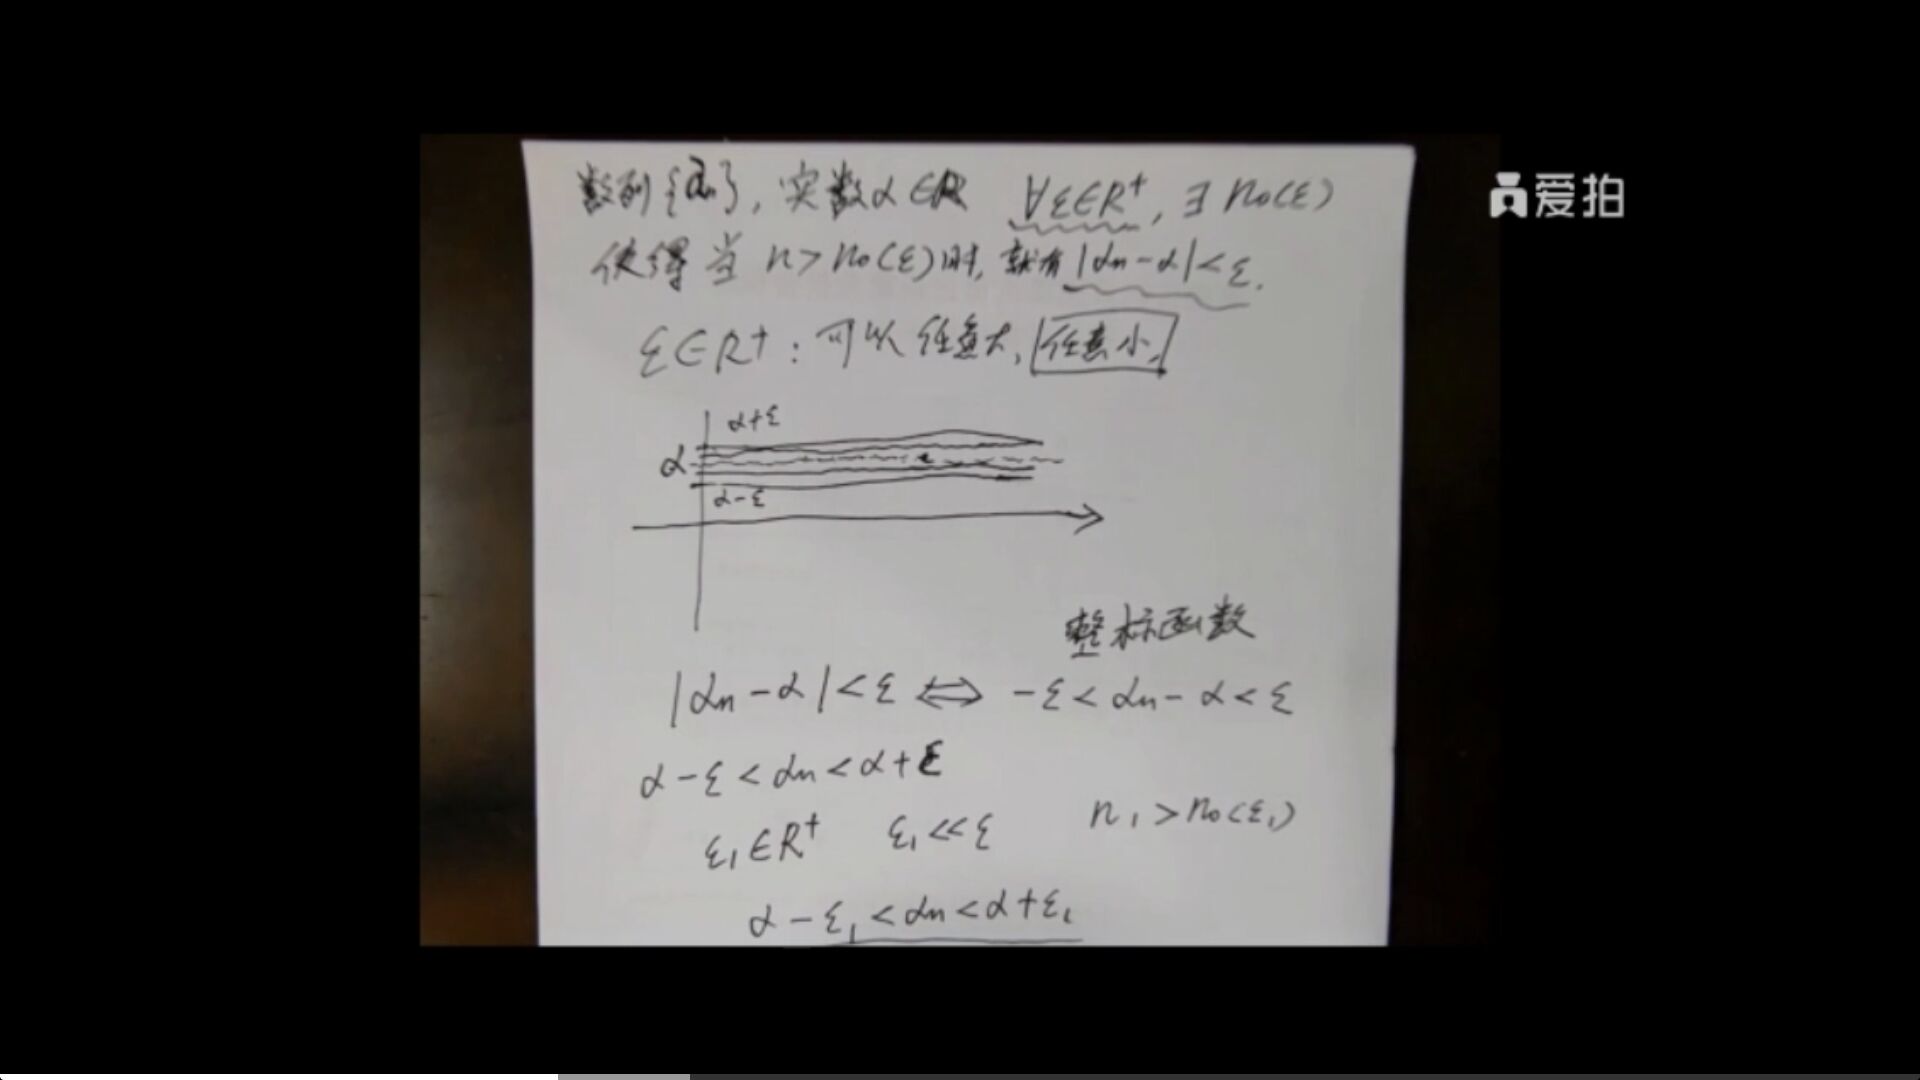 数列{αn}, 实数α∈R ∀ε∈R⁺, ∃ n₀(ε)
爱拍
使得当 n>n₀(ε)时, 就有|αn-α|<ε.
ε∈R⁺: 可以任意大, 任意小.
α+ε
α
α-ε
整标函数
|αn-α|<ε ⇔ -ε<αn-α<ε
α-ε<αn<α+ε
n₁>n₀(ε₁)
ε₁∈R⁺ ε₁≪ε
α-ε₁<αn<α+ε₁